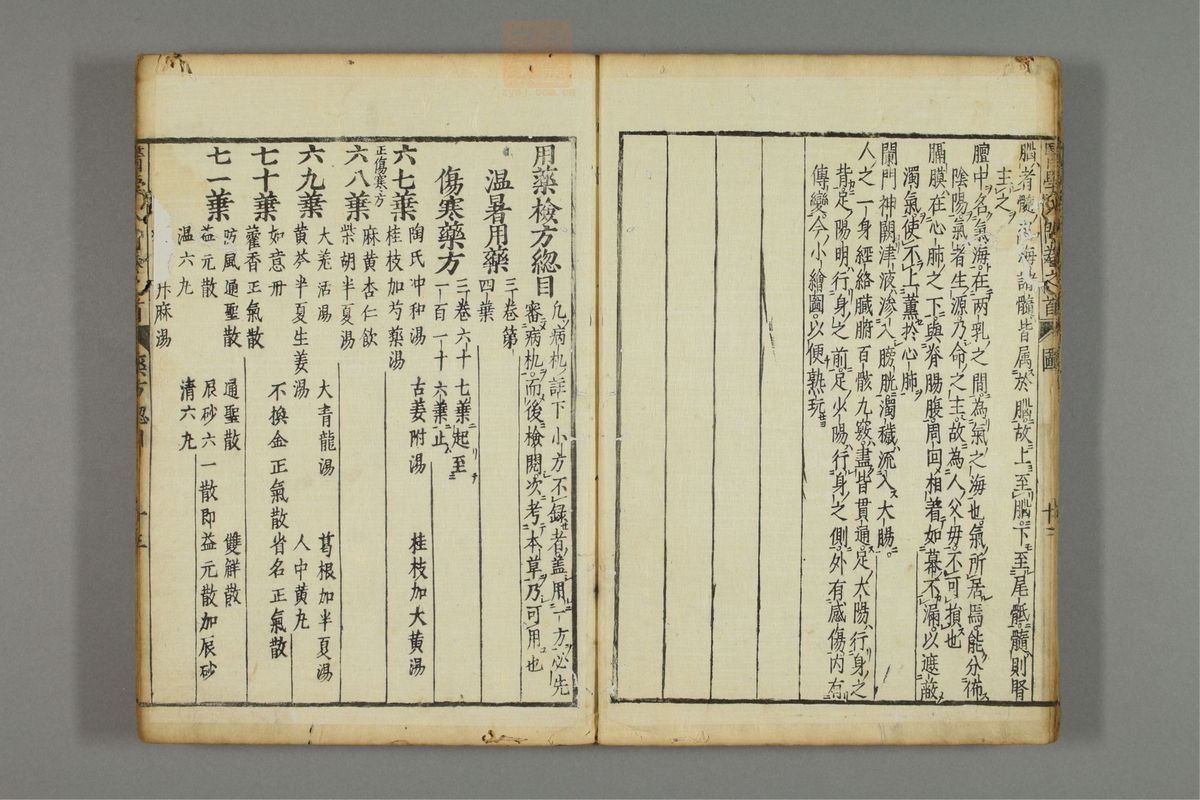 腦者髓之海諸髓皆属於腦故上至腦下至尾骶髓則腎
主之
膻中名氣海在両乳之間為氣之海也氣所居焉能分佈
陰陽氣者生源乃命之主故為人父母不可損也
膈膜在心肺之下與脊腸腹周回相著如幕不漏以遮蔽
濁氣使不上薰於心肺
闌門神闕津液滲入膀胱濁穢流入大腸
人之一身經絡臓腑百骸九竅盡皆貫通足太陽行身之
背足陽明行身之前足少陽行身之側外有感傷内有
傳變今小繪圖以便熟玩
用藥檢方總目
凡病机註下小方不録者盖用一方必先
審病机而後檢閲次考本草乃可用也
温暑用藥
三卷第
四葉
傷寒藥方
三卷六十七葉起至
一百一十六葉止
六七葉
陶氏冲和湯 古姜附湯 桂枝加大黄湯
桂枝加芍藥湯
正傷寒方
麻黄杏仁飲
六八葉
柴胡半夏湯
六九葉
大羌活湯 大青龍湯 葛根加半夏湯
黄芩半夏生姜湯 人中黄丸
七十葉
如意丹 不換金正氣散省名正氣散
藿香正氣散
七一葉
防風通聖散 通聖散 雙解散
益元散 辰砂六一散即益元散加辰砂
温六丸 清六丸
升麻湯